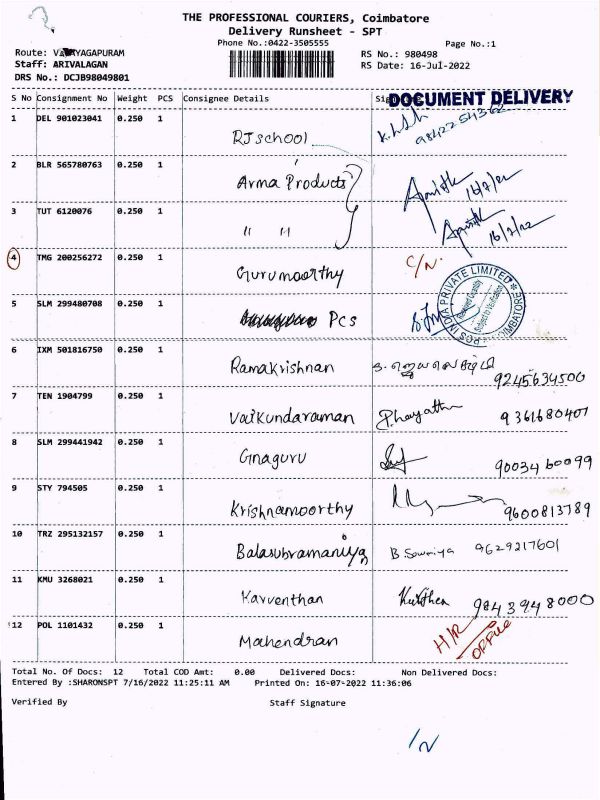 THE PROFESSIONAL COURIERS, Coimbatore
Delivery Runsheet - SPT
Phone No.:0422-3505555
Page No.:1
Staff: ARIVALAGAN
RS No.: 980498
RS Date: 16-Jul-2022
DRS No.: DCJB98049801
S No Consignment No Weight PCS Consignee Details
DOCUMENT DELIVERY
1 DEL 901023041 0.250 1
RJ school
9842254362
2 BLR 565780763 0.250 1
Arma Products
16/7/22
3 TUT 6120076 0.250 1
" "
16/7/22
4 TMG 200256272 0.250 1
Gurumoorthy
C/N.
5 SLM 299480708 0.250 1
PCS
PCS INDIA PRIVATE LIMITED
COIMBATORE
6 IXM 501816750 0.250 1
Ramakrishnan
9245634500
7 TEN 1904799 0.250 1
Vaikundaraman
9361680407
8 SLM 299441942 0.250 1
Gnaguru
9003460099
9 STY 794505 0.250 1
Krishnamoorthy
9600813789
10 TRZ 295132157 0.250 1
B. Sowmiya 9629217601
11 KMU 3268021 0.250 1
Kavventhan
9843948000
12 POL 1101432 0.250 1
Mahendran
H/R
OFFICE
Total No. Of Docs: 12 Total COD Amt: 0.00 Delivered Docs: Non Delivered Docs:
Entered By :SHARONSPT 7/16/2022 11:25:11 AM Printed On: 16-07-2022 11:36:06
Verified By Staff Signature